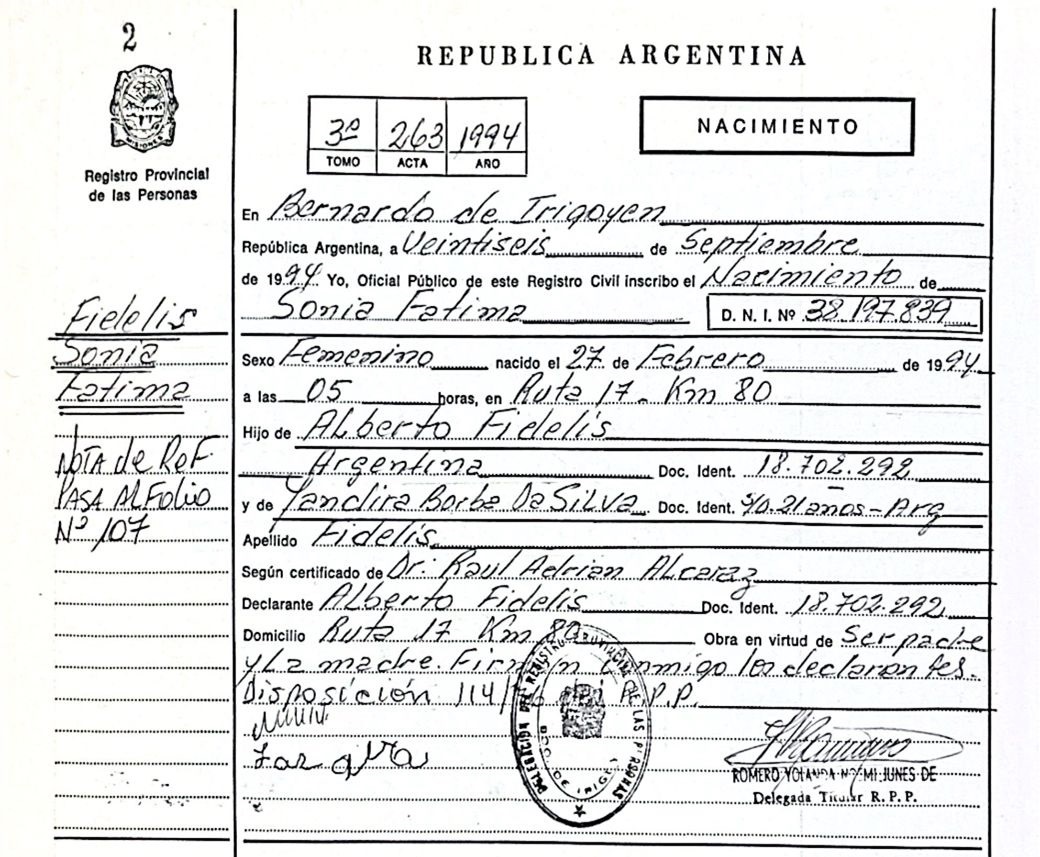 2
MISIONES
Registro Provincial
de las Personas
REPUBLICA ARGENTINA
3º 263 1994
TOMO ACTA AÑO
NACIMIENTO
En Bernardo de Irigoyen
República Argentina, a Veintiseis de Septiembre
de 1994 Yo, Oficial Público de este Registro Civil inscribo el Nacimiento de
Sonia Fatima D. N. I. Nº 38.197.839
Sexo Femenino nacido el 27 de Febrero de 1994
a las 05 horas, en Ruta 17. Km 80
Hijo de ALberto Fidelis
Argentina Doc. Ident. 18.702.292
y de Jandira Borbe Da SiLva Doc. Ident. 40.21años-Arg
Apellido Fidelis
Según certificado de Dr. Raul Adrian ALcaraz
Declarante ALberto Fidelis Doc. Ident. 18.702.292
Domicilio Ruta 17 Km 80 Obra en virtud de Ser padre
y La madre. Firman Conmigo los declarantes.
Disposición 114/ R.P.P.
Fidelis
Sonia
Fatima
NOTA de ReF
PASA AL Folio
Nº 107
DELEGACION DEL REGISTRO PROVINCIAL DE LAS PERSONAS
BDO. DE IRIGOYEN
ROMERO YOLANDA NOEMI JUNES DE
Delegada Titular R. P. P.